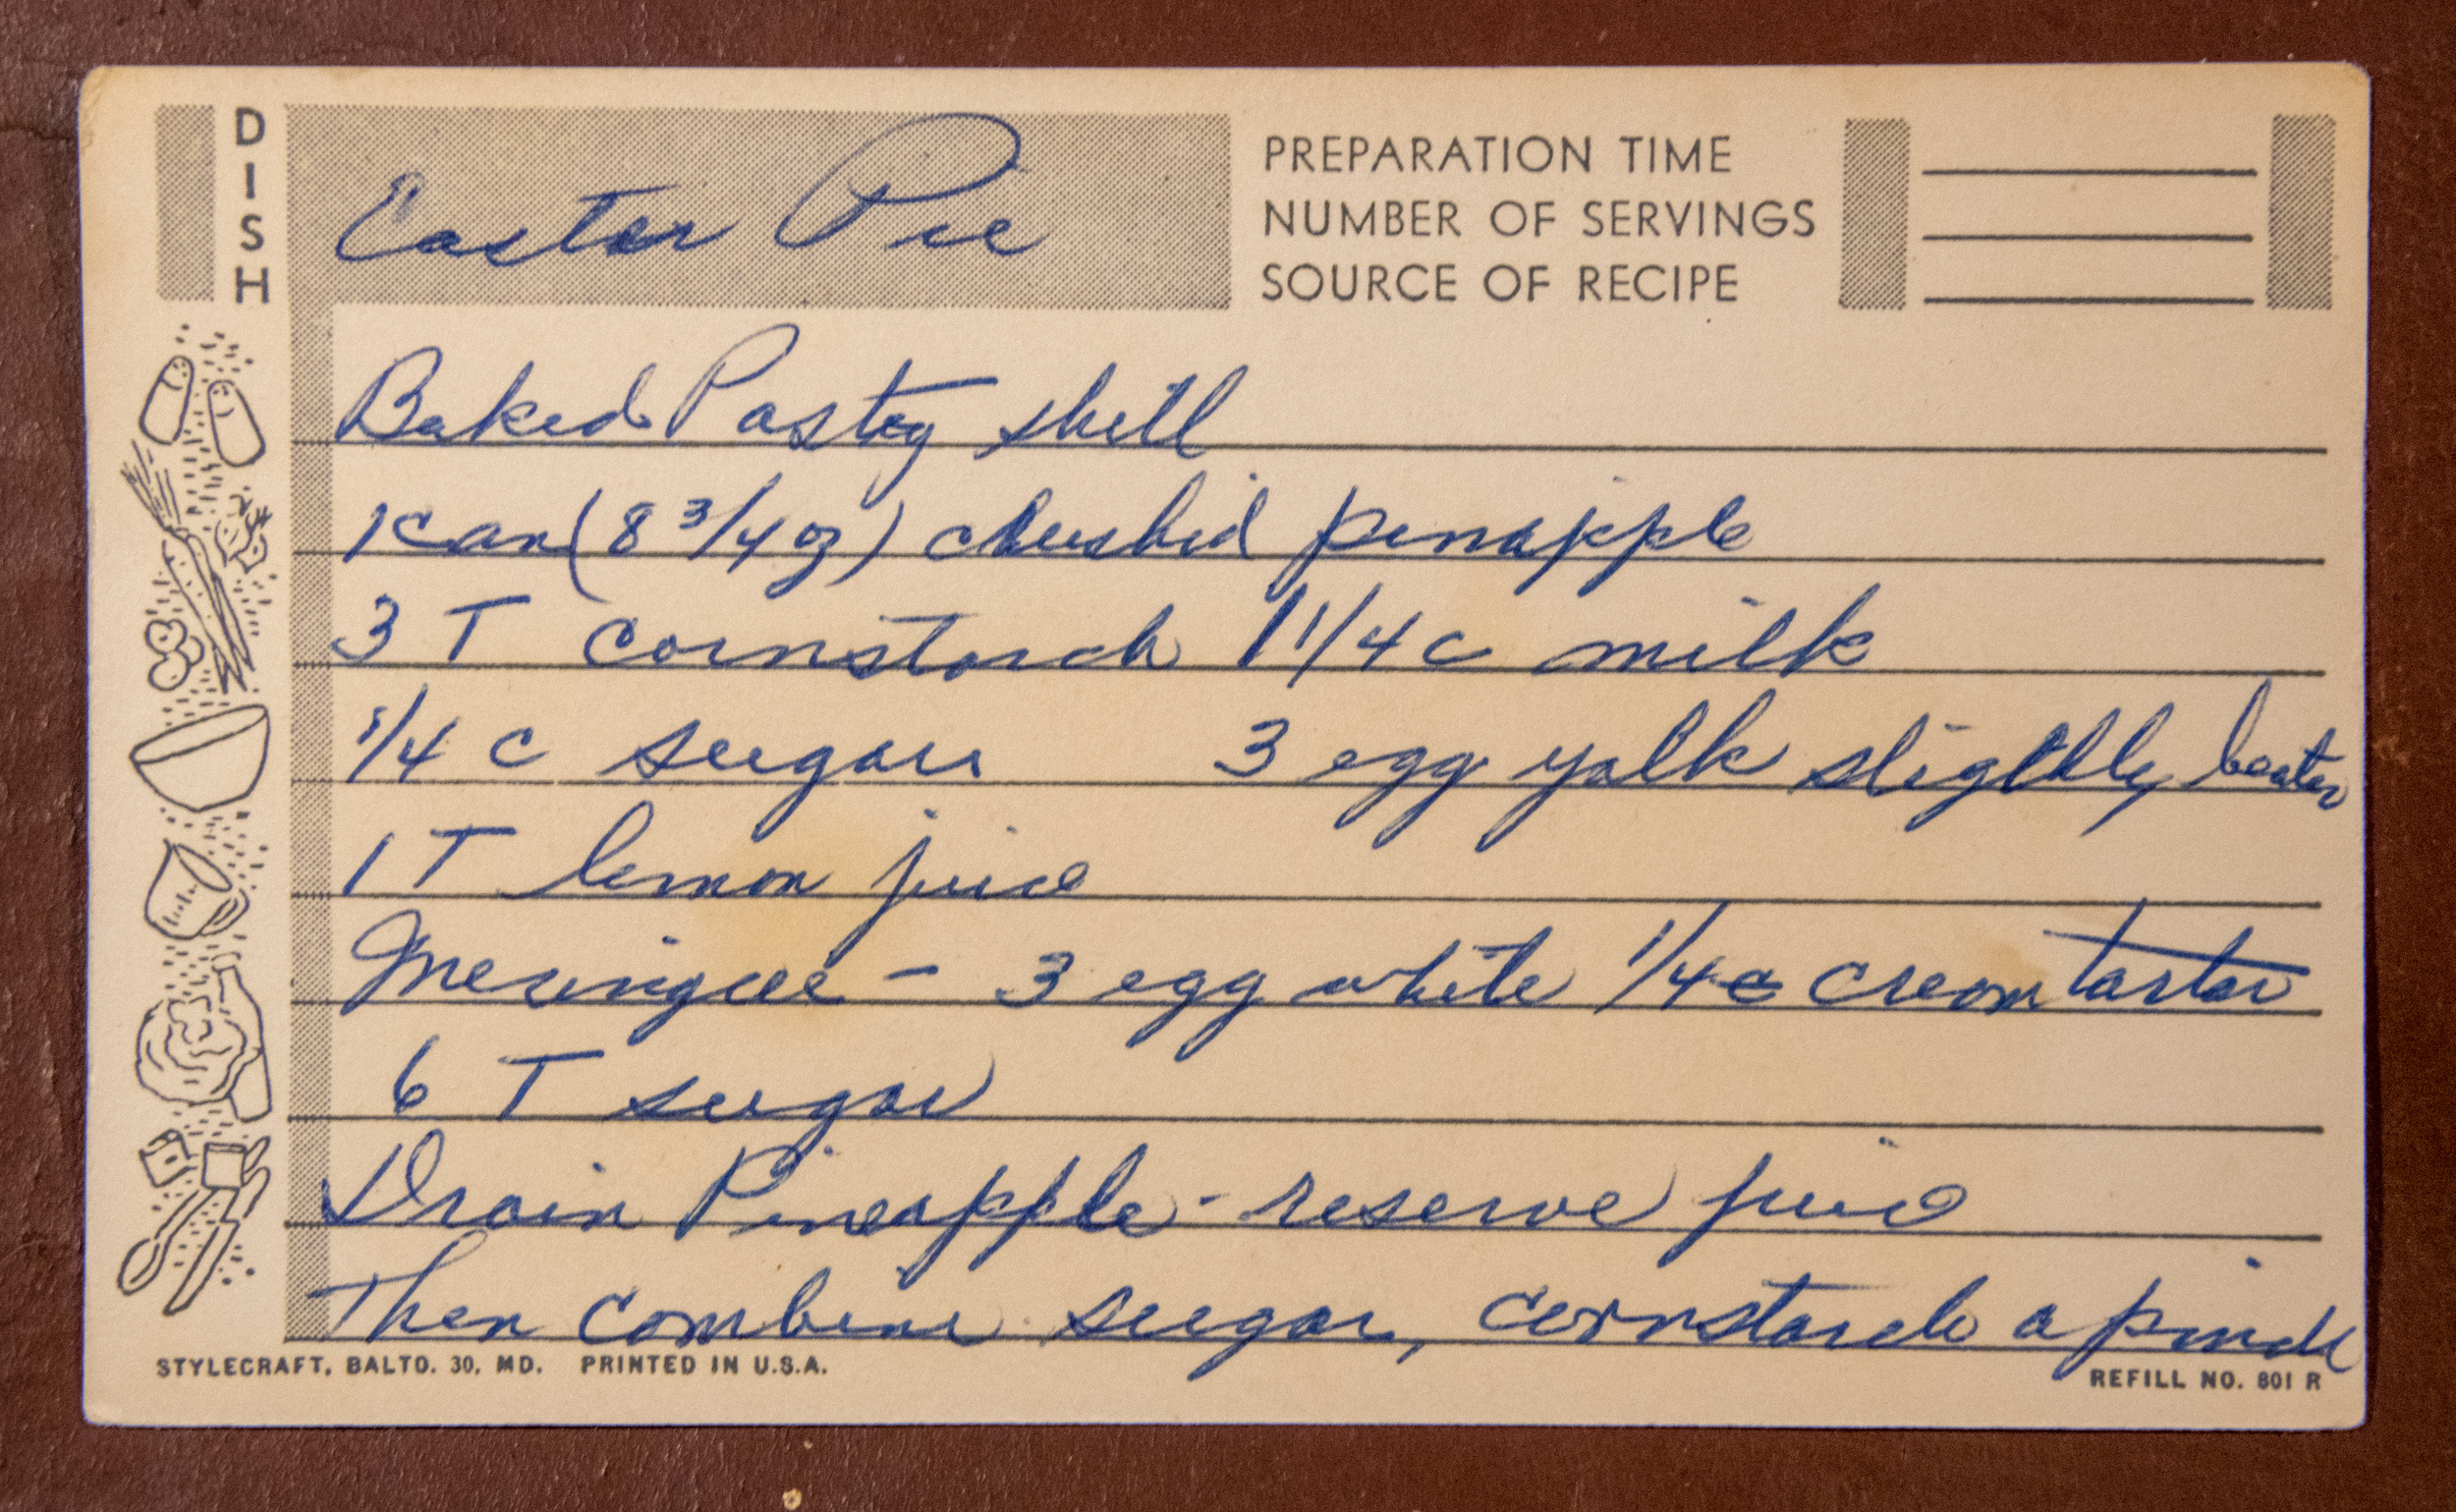 DISH
Easter Pie
PREPARATION TIME
NUMBER OF SERVINGS
SOURCE OF RECIPE
Baked Pastry shell
1 can (8 3/4 oz) crushed pinapple
3 T cornstarch 1 1/4 c milk
1/4 c sugar 3 egg yolk sligthly beaten
1 T lemon juice
Meringue - 3 egg white 1/4 c cream tartar
6 T sugar
Drain Pineapple - reserve juice
Then combine sugar, cornstarch a pinch
STYLECRAFT, BALTO. 30, MD. PRINTED IN U.S.A.
REFILL NO. 801 R